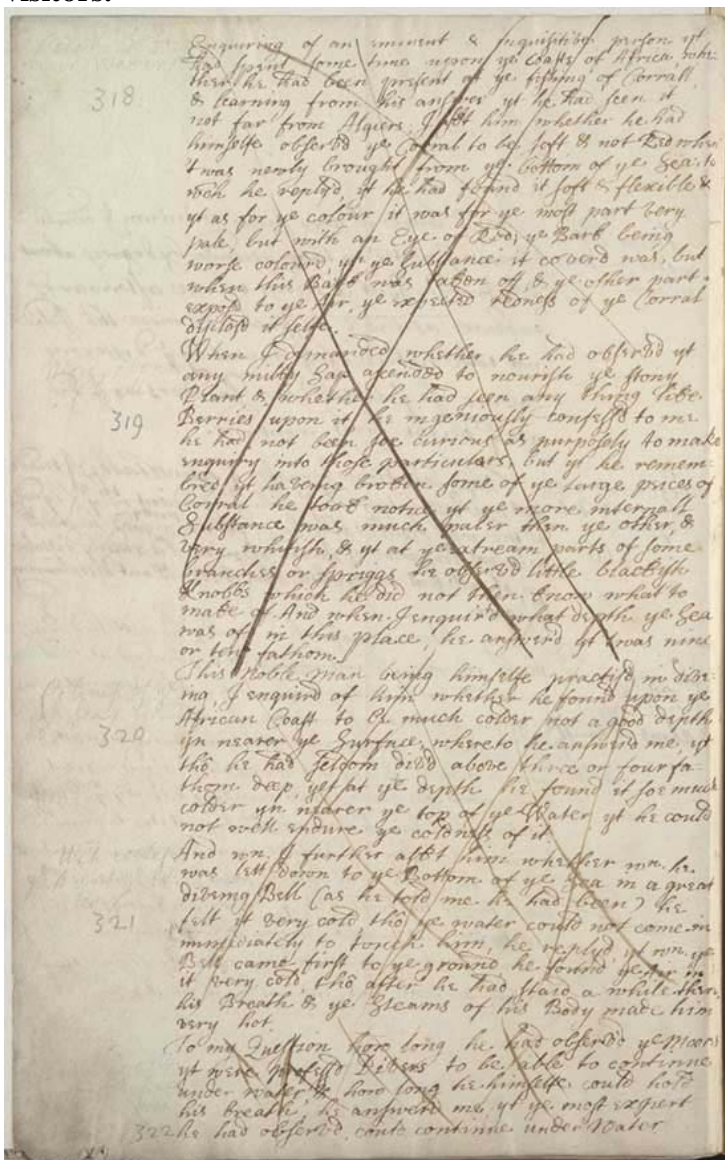 visitors.
Enquiring of an eminent & inquisitive person yt
had spent some time upon ye coasts of Africa, whe
ther he had been present at ye fishing of Corrall
318
& learning from his answer yt he had seen it
not far from Algiers, I askt him whether he had
himselfe observ'd ye Corral to be soft & not Red when
t'was newly brought from ye bottom of ye Sea: to
wch he replyd yt he had found it soft & flexible &
yt as for ye colour it was for ye most part very
pale, but with an Eye of Red, ye Bark being
worse colourd, yn ye Substance it coverd was, but
when this Bark was taken off, & ye other part
expos'd to ye Air ye expected redness of ye Corral
disclos'd it selfe.
When I demanded whether he had observ'd yt
any milky Sap ascended to nourish ye stony
Plant & whether he had seen any thing like
319
Berries upon it, he ingeniously confess'd to me
he had not been soe curious as purposely to make
enquiry into those particulars, but yt he remem
bred yt haveing broken some of ye large pieces of
Corral he took notice yt ye more internall
Substance was much paler then ye other, &
very whitish, & yt at ye extream parts of some
branches or spriggs he observ'd little blackish
Knobbs which he did not then know what to
make of. And when I enquir'd what depth ye Sea
was of in this place, he answerd yt t'was nine
or ten fathom.
This Noble man being himselfe practis'd in dive-
ing, I enquird of him whether he found upon ye
African Coast to be much colder not a good depth
320
yn nearer ye Surface, whereto he answerd me, yt
thô he had seldom div'd above three or four fa-
thom deep, yet at ye depth he found it soe much
colder yn nearer ye top of ye Water yt he could
not well endure ye coldness of it.
And wn. I further askt him whether wn. he
was lett down to ye Bottom of ye Sea in a great
diveing Bell (as he told me he had been) he
321
felt it very cold, thô ye water could not come in
immediately to touch him, he replyd, yt wn. ye
Bell came first to ye ground he found ye Air in
it very cold, thô after he had staid a while there
his Breath & ye Steams of his Body made him
very hot.
To my Question how long he had observ'd ye Moors
yt were profess'd Divers to be able to continue
under water & how long he himselfe could hold
his breath, he answerd me, yt ye most expert
322 he had observ'd, could continue under Water